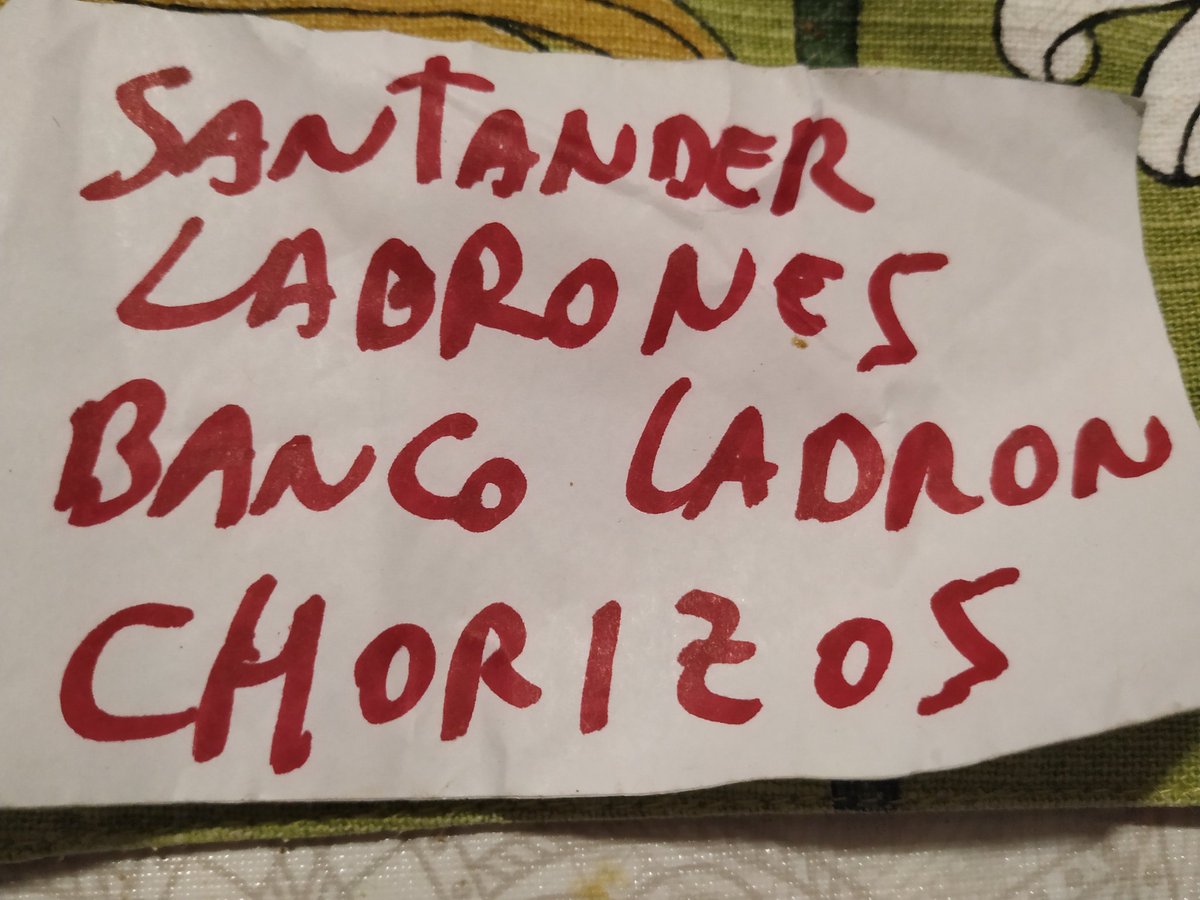 SANTANDER
LADRONES
BANCO LADRON
CHORIZOS